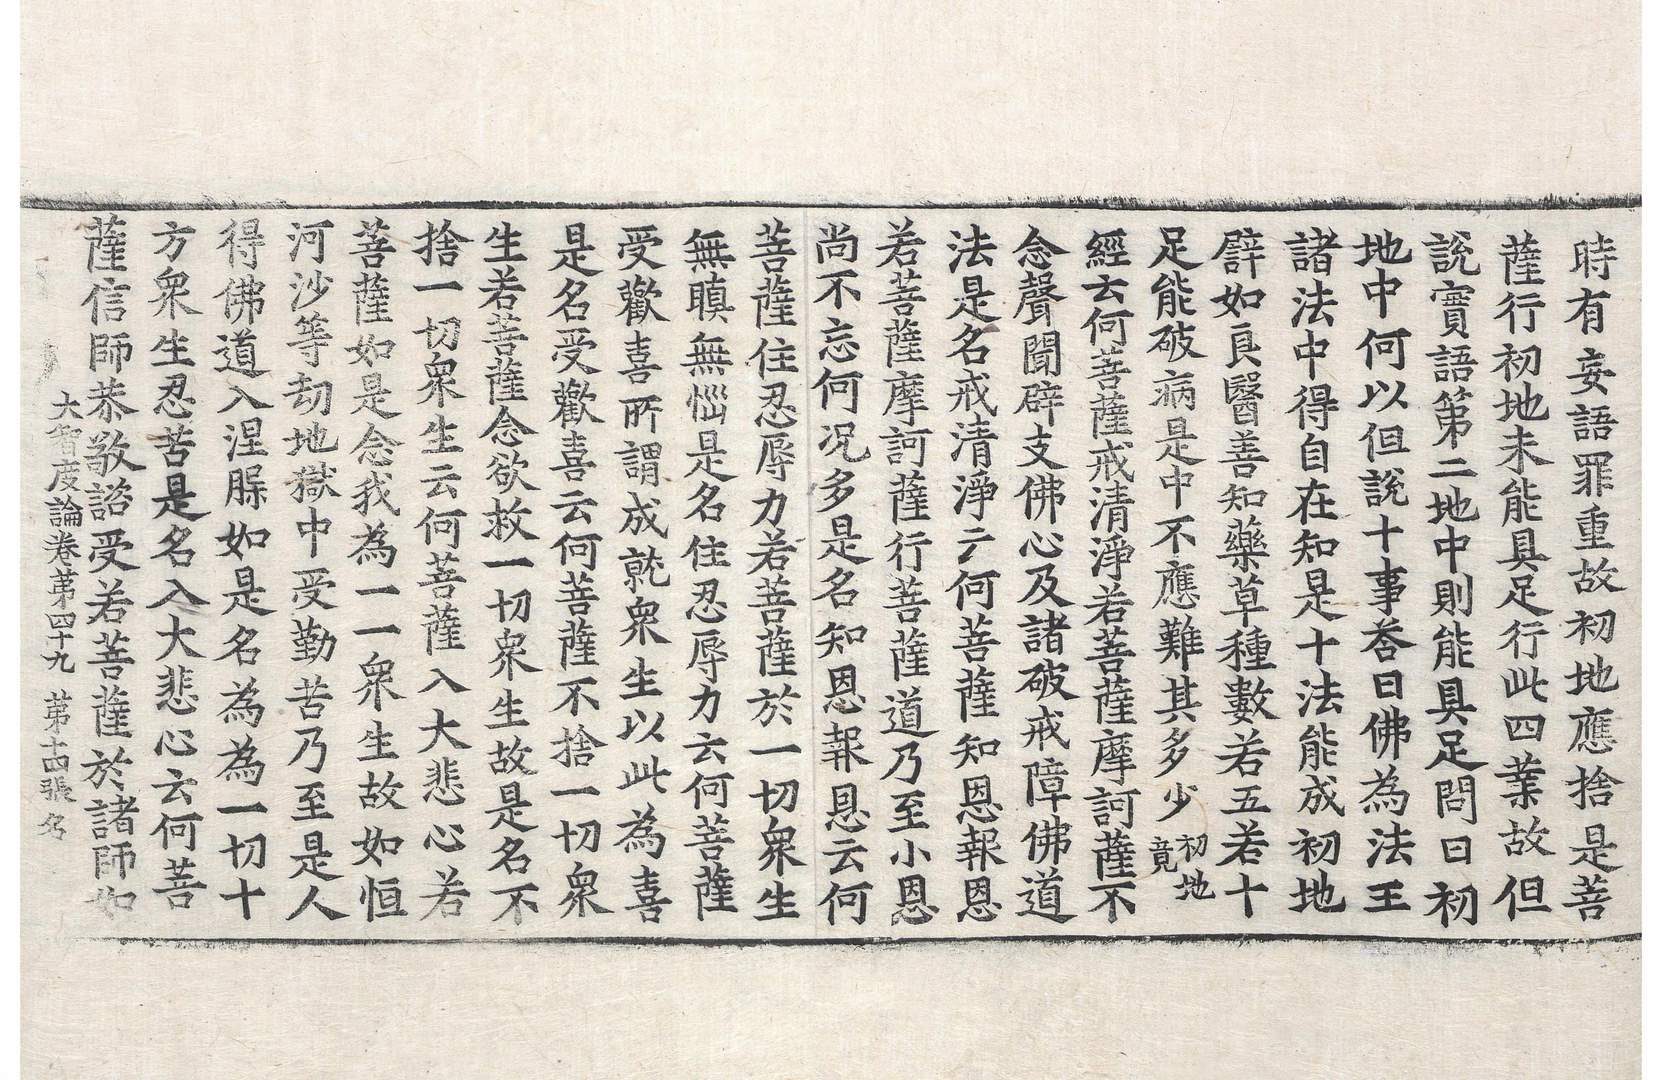 時有妄語罪重故初地應捨是菩
薩行初地未能具足行此四業故但
說實語第二地中則能具足問曰初
地中何以但說十事荅曰佛為法王
諸法中得自在知是十法能成初地
譬如良醫善知藥草種數若五若十
足能破病是中不應難其多少初地竟
經云何菩薩戒清淨若菩薩摩訶薩不
念聲聞辟支佛心及諸破戒障佛道
法是名戒清淨云何菩薩知恩報恩
若菩薩摩訶薩行菩薩道乃至小恩
尚不忘何況多是名知恩報恩云何
菩薩住忍辱力若菩薩於一切衆生
無瞋無惱是名住忍辱力云何菩薩
受歡喜所謂成就衆生以此為喜
是名受歡喜云何菩薩不捨一切衆
生若菩薩念欲救一切衆生故是名不
捨一切衆生云何菩薩入大悲心若
菩薩如是念我為一一衆生故如恒
河沙等劫地獄中受勤苦乃至是人
得佛道入涅槃如是名為為一切十
方衆生忍苦是名入大悲心云何菩
薩信師恭敬諮受若菩薩於諸師如
大智度論卷第四十九 第十四張 名